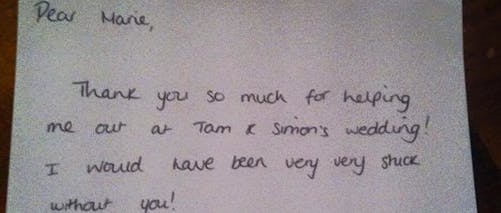 Dear Marie,
Thank you so much for helping
me out at Tam & Simon's wedding!
I would have been very very stuck
without you!